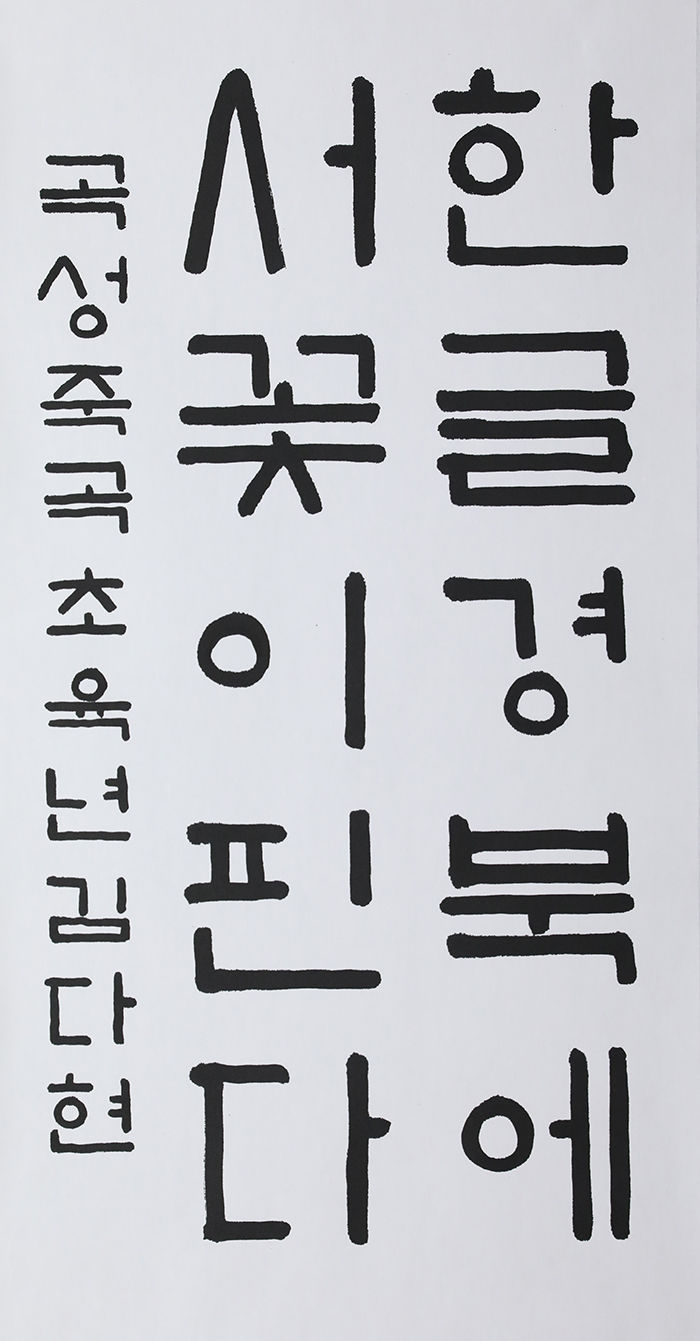 한글경북에
서꽃이핀다
곡성죽곡초육년김다현